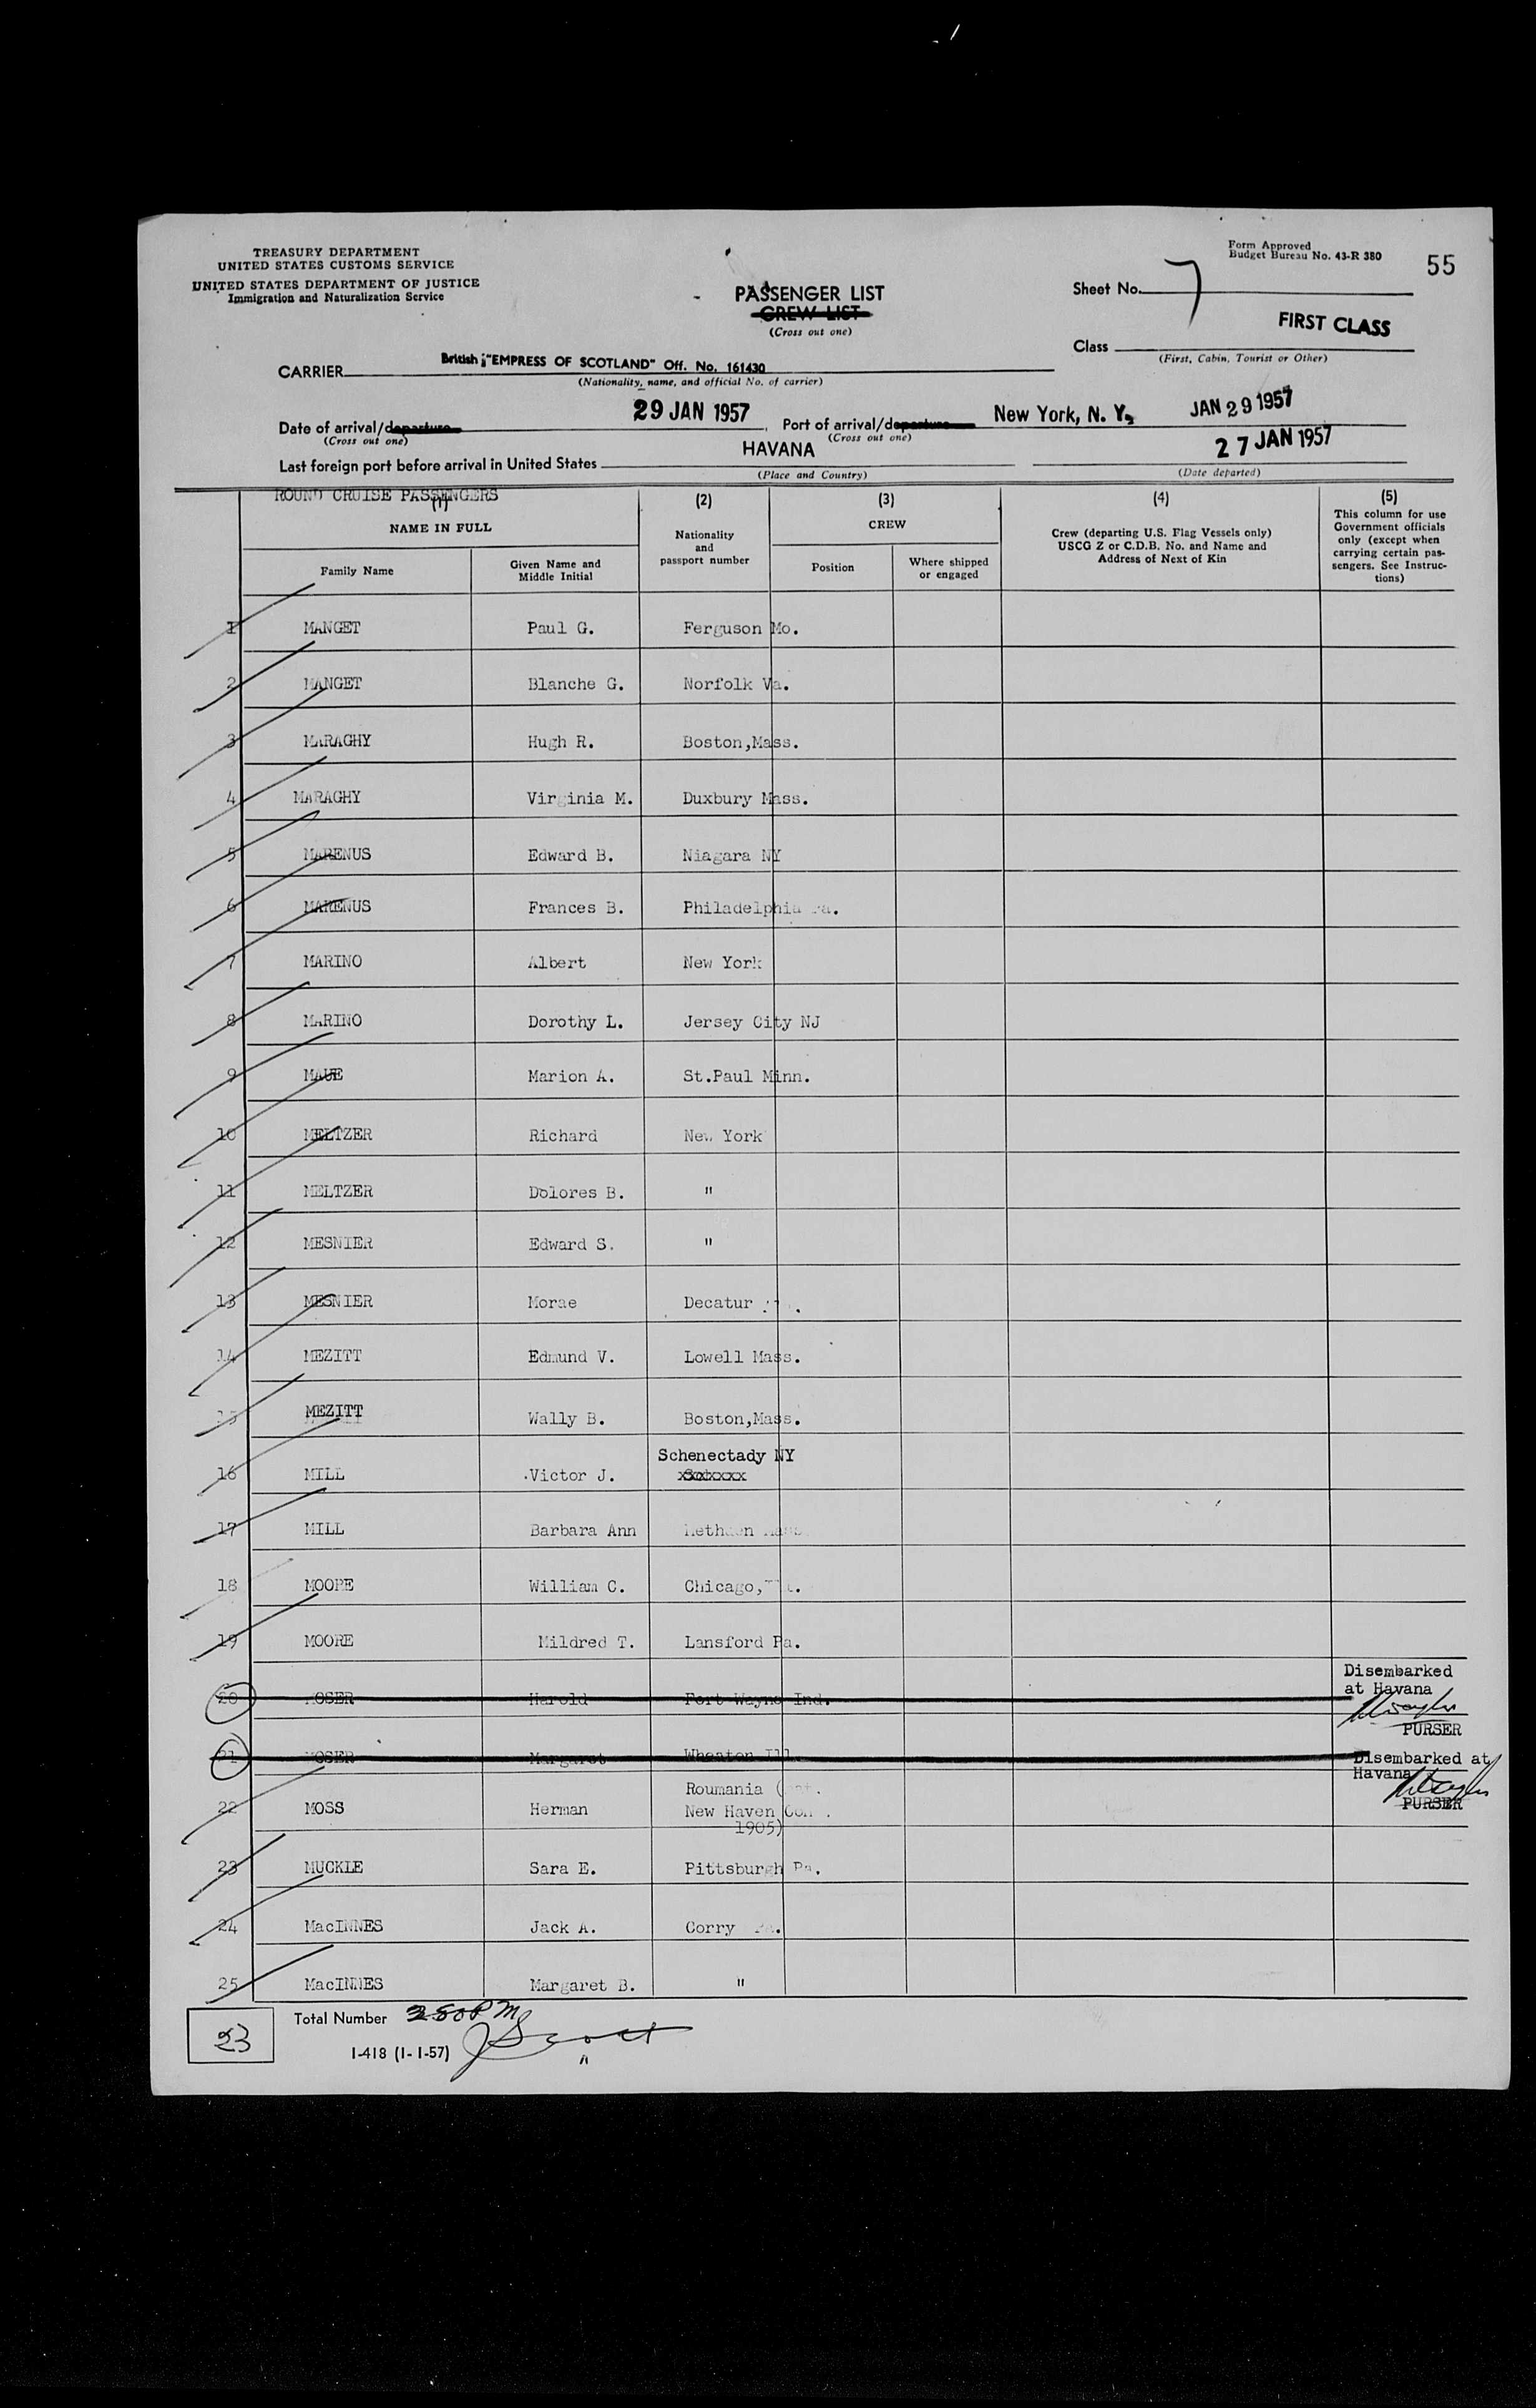 TREASURY DEPARTMENT
UNITED STATES CUSTOMS SERVICE
UNITED STATES DEPARTMENT OF JUSTICE
Immigration and Naturalization Service
PASSENGER LIST
CREW LIST
(Cross out one)
Form Approved
Budget Bureau No. 43-R 380
55
Sheet No. 7
FIRST CLASS
Class
(First, Cabin, Tourist or Other)
CARRIER British; "EMPRESS OF SCOTLAND" Off. No. 161430
(Nationality, name, and official No. of carrier)
Date of arrival/departure 29 JAN 1957 Port of arrival/departure New York, N. Y. JAN 29 1957
(Cross out one) (Cross out one)
Last foreign port before arrival in United States HAVANA 27 JAN 1957
(Place and Country) (Date departed)
ROUND CRUISE PASSENGERS
(1) (2) (3) (4) (5)
NAME IN FULL
Family Name
Given Name and
Middle Initial
Nationality
and
passport number
CREW
Position
Where shipped
or engaged
Crew (departing U.S. Flag Vessels only)
USCG Z or C.D.B. No. and Name and
Address of Next of Kin
This column for use
Government officials
only (except when
carrying certain pas-
sengers. See Instruc-
tions)
1 MANGET Paul G. Ferguson Mo.
2 MANGET Blanche G. Norfolk Va.
3 MARAGHY Hugh R. Boston,Mass.
4 MARAGHY Virginia M. Duxbury Mass.
5 MARENUS Edward B. Niagara NY
6 MARENUS Frances B. Philadelphia Pa.
7 MARINO Albert New York
8 MARINO Dorothy L. Jersey City NJ
9 MAUE Marion A. St.Paul Minn.
10 MELTZER Richard New York
11 MELTZER Dolores B. "
12 MESNIER Edward S. "
13 MESNIER Morae Decatur
14 MEZITT Edmund V. Lowell Mass.
15 MEZITT Wally B. Boston,Mass.
Schenectady NY
16 MILL Victor J.
17 MILL Barbara Ann Methuen Mass
18 MOORE William C. Chicago,
19 MOORE Mildred T. Lansford Pa.
20 MOSER Harold Fort Wayne Ind.
Disembarked
at Havana
PURSER
21 MOSER Margaret Wheaton Ill.
Disembarked at
Havana
PURSER
22 MOSS Herman Roumania (nat.
New Haven Con.
1905)
23 MUCKLE Sara E. Pittsburgh Pa.
24 MacINNES Jack A. Corry Pa.
25 MacINNES Margaret B. "
23
Total Number 250 PM
J Scott
I-418 (1-1-57)